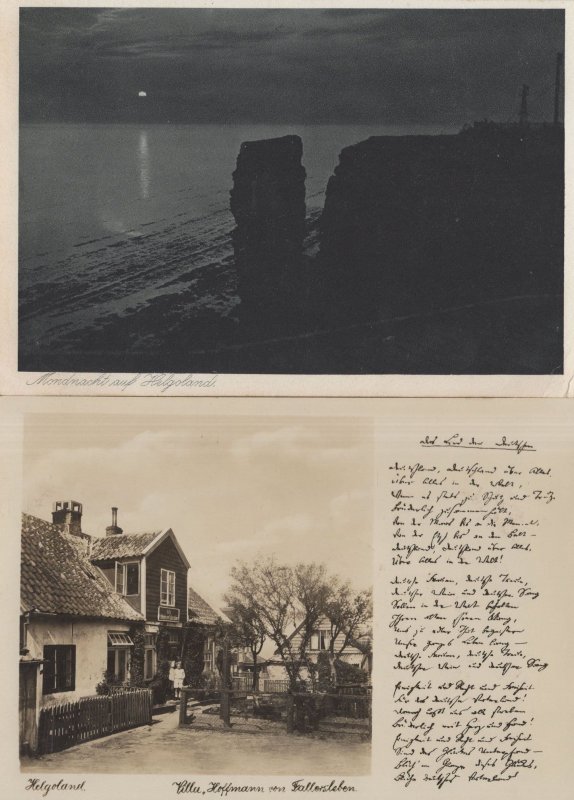 Mondnacht auf Helgoland.
Das Lied der Deutschen
Deutschland, Deutschland über Alles,
Über Alles in der Welt,
Wenn es stets zu Schutz und Trutz
Brüderlich zusammenhält,
Von der Maas bis an die Memel,
Von der Etsch bis an den Belt –
Deutschland, Deutschland über Alles,
Über Alles in der Welt!
Deutsche Frauen, deutsche Treue,
Deutscher Wein und deutscher Sang
Sollen in der Welt behalten
Ihren alten schönen Klang,
Uns zu edler That begeistern
Unser ganzes Leben lang –
Deutsche Frauen, deutsche Treue,
Deutscher Wein und deutscher Sang
Einigkeit und Recht und Freiheit
Für das deutsche Vaterland!
Danach laßt uns alle streben
Brüderlich mit Herz und Hand!
Einigkeit und Recht und Freiheit
Sind des Glückes Unterpfand –
Blüh' im Glanze dieses Glückes,
Blühe deutsches Vaterland!
Helgoland.
Villa „Hoffmann von Fallersleben.